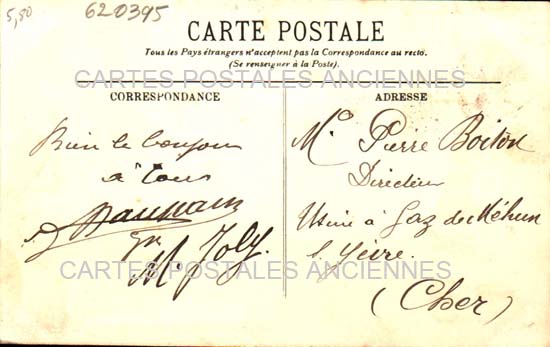 5,80
620395
CARTE POSTALE
Tous les Pays étrangers n'acceptent pas la Correspondance au recto.
(Se renseigner à la Poste).
CARTES POSTALES ANCIENNES
CORRESPONDANCE
Bien le bonjour
à tous
M. Joly.
ADRESSE
Mr Pierre Boiton
Directeur
Usine à Gaz de Méhun
s. Yèvre.
(Cher)
CARTES POSTALES ANCIENNES